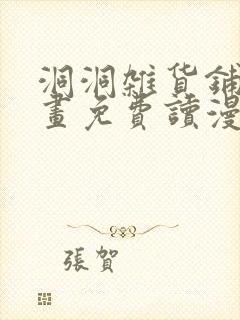 洞洞雜貨鋪
畫免費讀漫
張賀